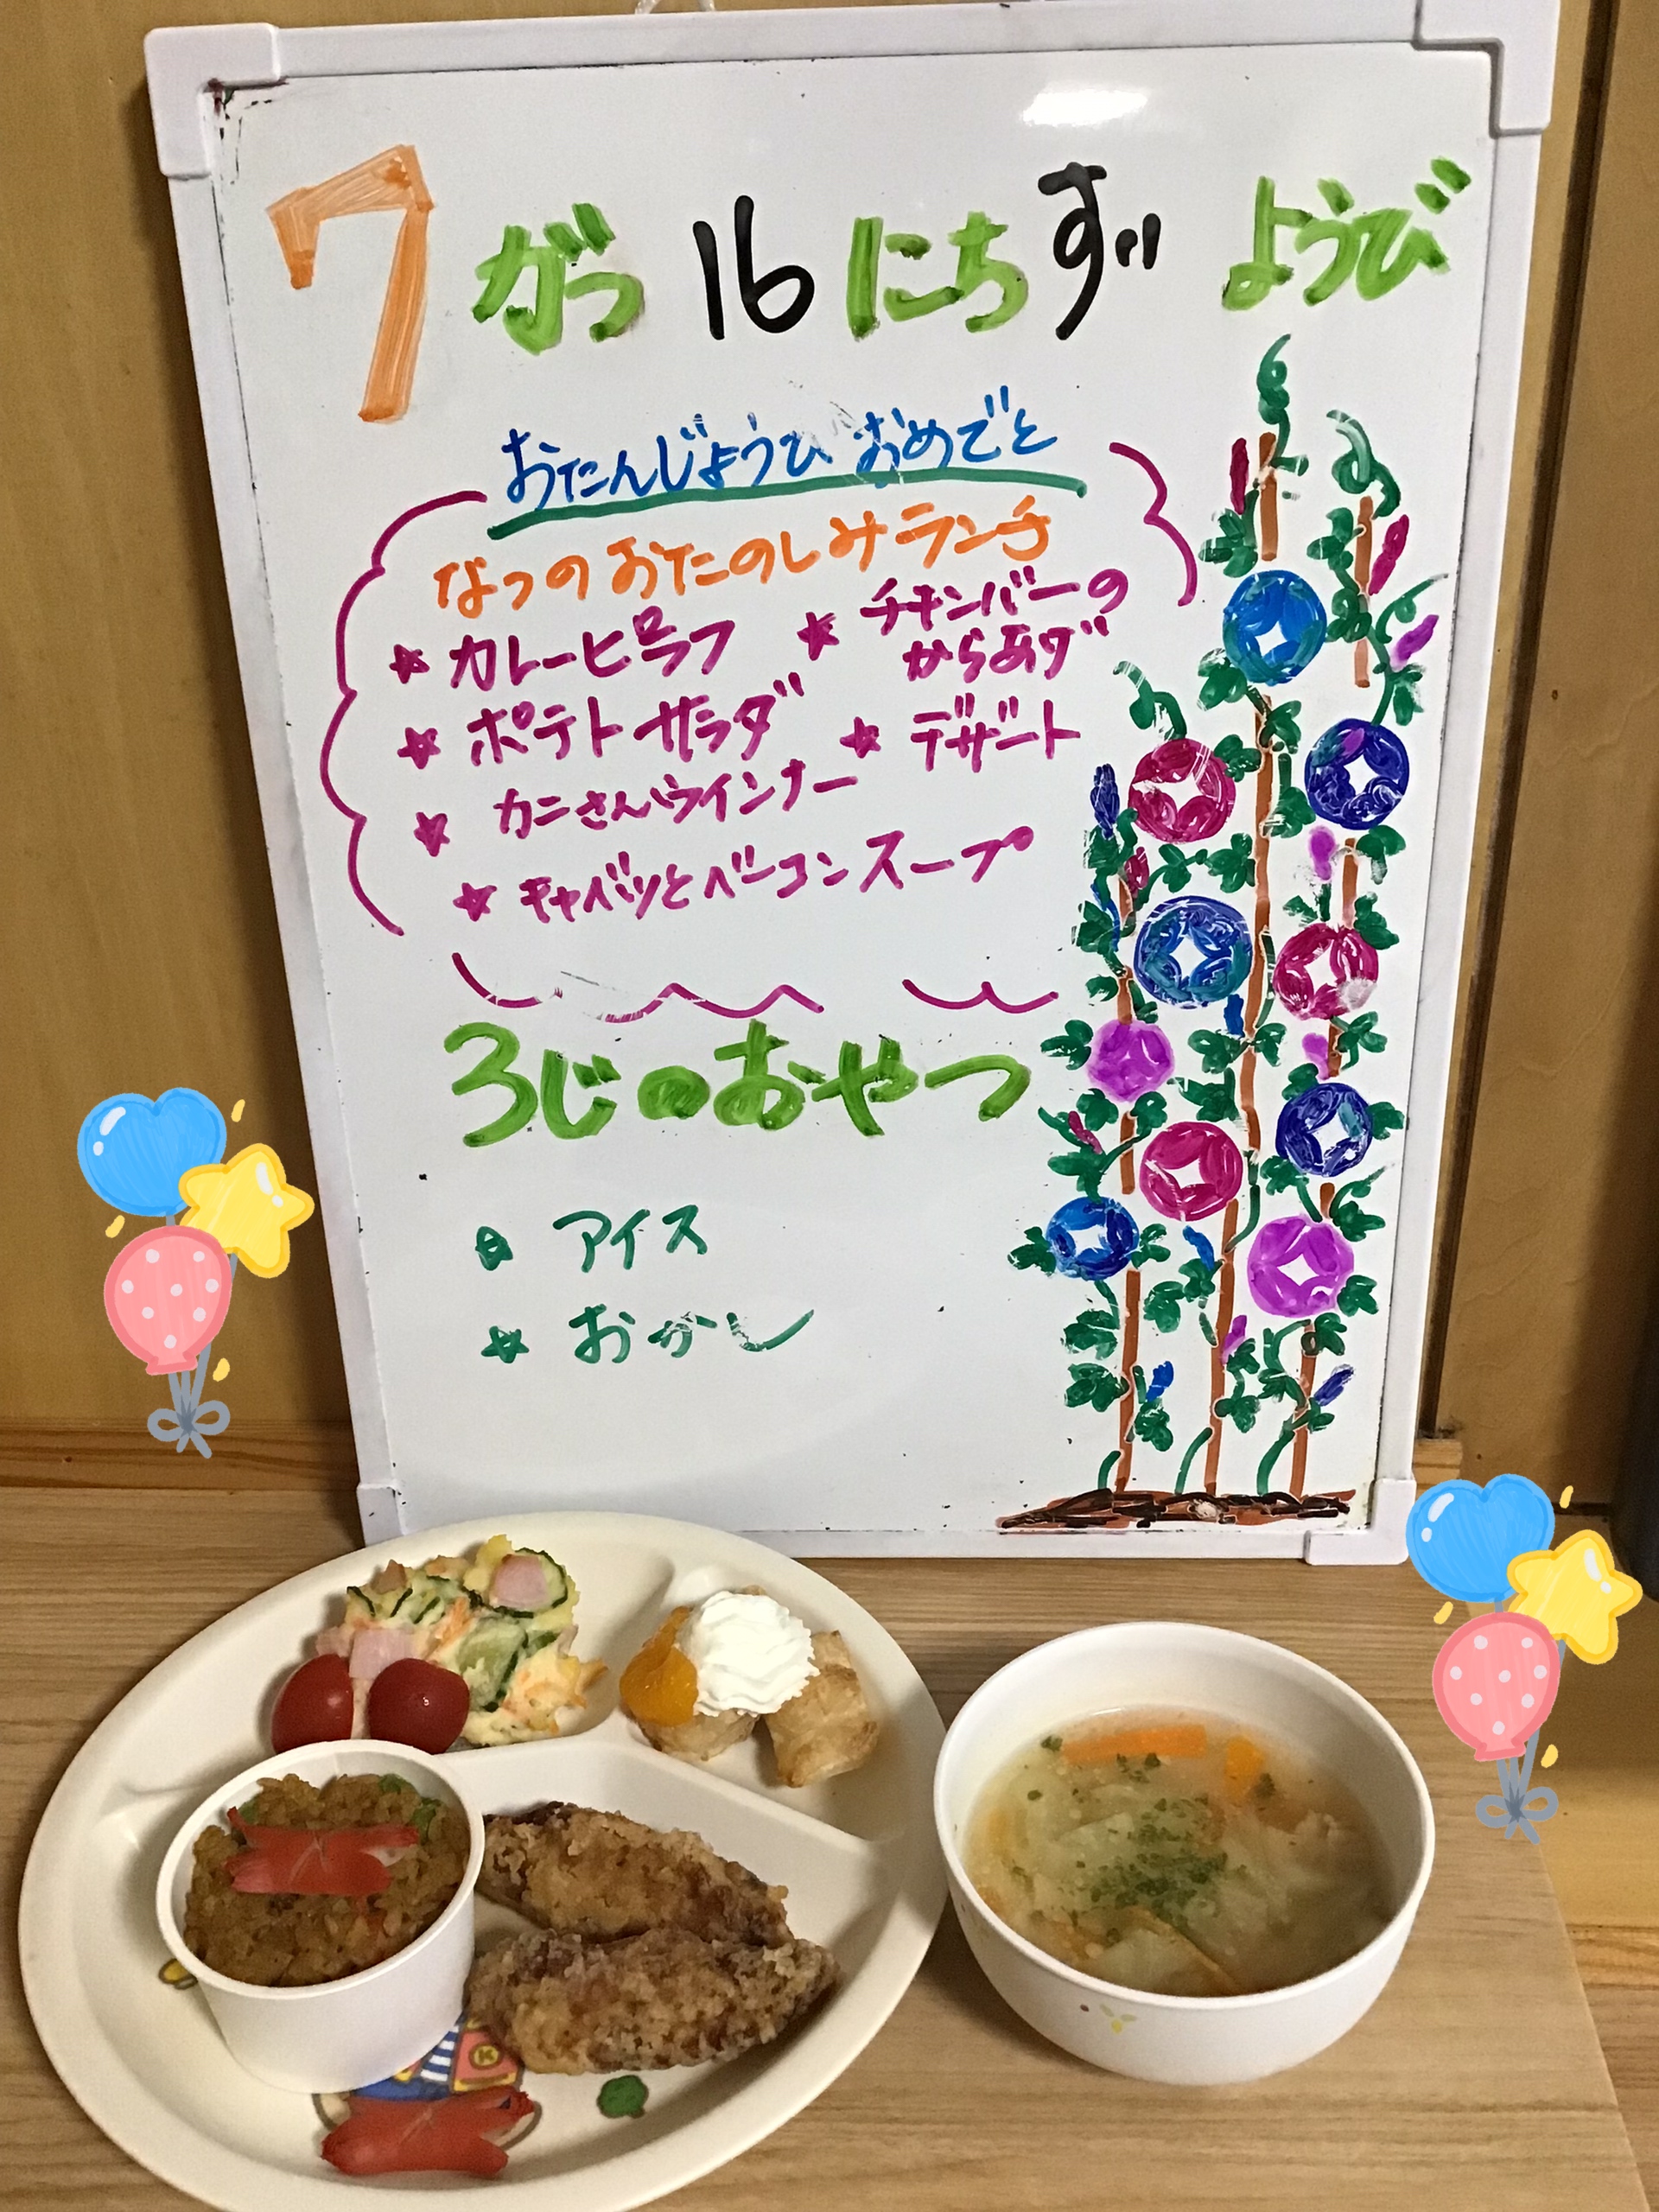 7がつ16にちすいようび
おたんじょうびおめでと
なつのおたのしみランチ
★カレーピラフ ★チキンバーの
からあげ
★ポテトサラダ ★デザート
★カニさんウインナー
★キャベツとベーコンスープ
3じのおやつ
★アイス
★おかし
K